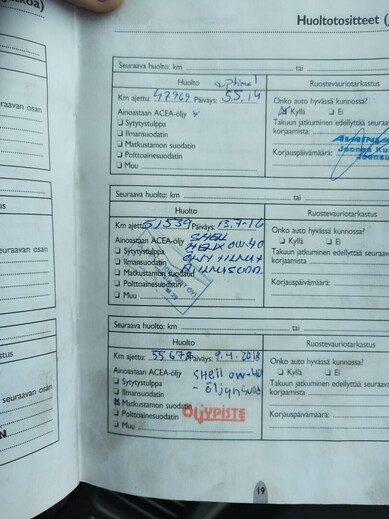 Huoltotositteet
Seuraava huolto: km tai
Huolto
Ruostevauriotarkastus
Km ajettu: 47969 Päiväys: 5.5.14
Ainoastaan ACEA-öljy
Sytytystulppa
Ilmansuodatin
Matkustamon suodatin
Polttoainesuodatin
Muu
Onko auto hyvässä kunnossa?
Kyllä Ei
Takuun jatkuminen edellyttää seuraavia
korjaamista
Korjauspäivämäärä:
Seuraava huolto: km tai
Huolto
Ruostevauriotarkastus
Km ajettu: 51539 Päiväys: 13.7-16
Ainoastaan ACEA-öljy SHELL
Sytytystulppa HELIX 0W-40
Ilmansuodatin
Matkustamon suodatin
Polttoainesuodatin
Muu
Onko auto hyvässä kunnossa?
Kyllä Ei
Takuun jatkuminen edellyttää
korjaamista
Korjauspäivämäärä:
Seuraava huolto: km tai
Huolto
Ruostevauriotarkastus
Km ajettu: 55678 Päiväys: 9.4.2018
Ainoastaan ACEA-öljy shell 0w-40
Sytytystulppa - öljynsuod
Ilmansuodatin
Matkustamon suodatin
Polttoainesuodatin
Muu
ÖLJYPISTE
Onko auto hyvässä kunnossa?
Kyllä Ei
Takuun jatkuminen edellyttää
korjaamista
Korjauspäivämäärä:
19